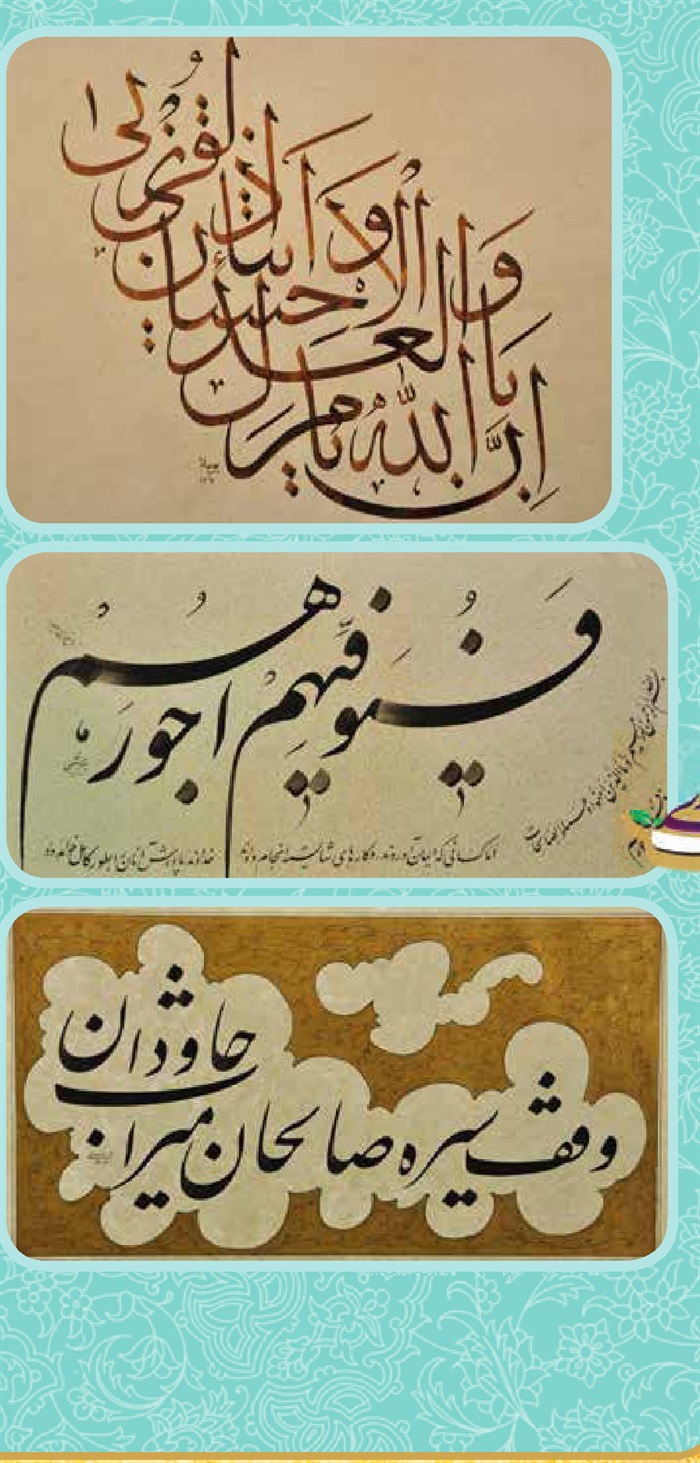 إن الله يأمر بالعدل والاحسان وايتاء ذي القربى
فيوفيهم اجورهم
اما کسانی که ایمان آوردند و کارهای شایسته انجام دادند خداوند پاداش آنان را بطور کامل خواهد داد
وقف سیره صالحان میراث جاودان